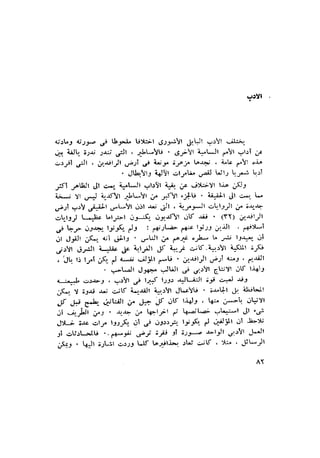 الأدب
يختلف الأدب البابلي الآشوري اختلافا ملحوظا في صورته ومادته
عن آداب الأمم السامية الأخرى . فالأساطير ، التي تندر ندرة بالغة بين
هذه الأمم عامة ، نجدها مزهرة مونعة في أرض الرافدين ، التي أفردت
أدبا شعريا رائعا لقصص مغامرات الآلهة والأبطال .
ولكن هذا الاختلاف عن بقية الآداب السامية يمت الى الظاهر أكثر
مما يمت الى الحقيقة . فالجزء الأكبر من الأساطير الأكدية ليس الا نسخة
جديدة من الروايات السومرية ، التي تعد اذن الأساس الحقيقي لأدب أرض
الرافدين (٣٢) . فقد كان الأكديون يكنون احتراما عظيما لروايات
أسلافهم ، الذين ورثوا عنهم حضارتهم ؛ ولم يكونوا يجدون حرجا في
أن يعيدوا نشر ما سطره غيرهم من الناس . والحق أنه يمكن القول ان
فكرة الملكية الأدبية كانت غريبة كل الغرابة على عقلية الشرق الأدنى
القديم ، ومنه أرض الرافدين . فاسم المؤلف نفسه لم يكن أمرا ذا بال ،
ولهذا كان الانتاج الأدبي في الغالب مجهول الصاحب .
وقد لعبت قوة التقاليد دورا كبيرا في الأدب ، وحددت طبيعته
المحافظة بل الجامدة . فالأعمال الأدبية القديمة كانت تعد قدوة لا يمكن
الاتيان بأحسن منها ، ولهذا كان كل جيل من الفنانين يطمح قبل كل
شيء الى استيعاب خصائصها ثم اخراجها من جديد . ومن الطريف أن
نلاحظ أن المؤلفين لم يكونوا يترددون في أن يكرروا عدة مرات خلال
العمل الأدبي الواحد صورة أو فقرة ترضى نفوسهم . فالمحادثات أو
الرسائل ، مثلا ، كانت تعاد بحذافيرها كلما وردت اشارة اليها . ويمكن
٨٢